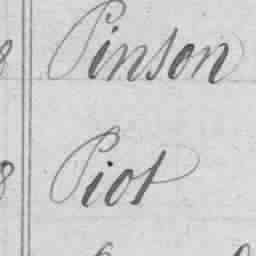 8 Pinson
8 Piot